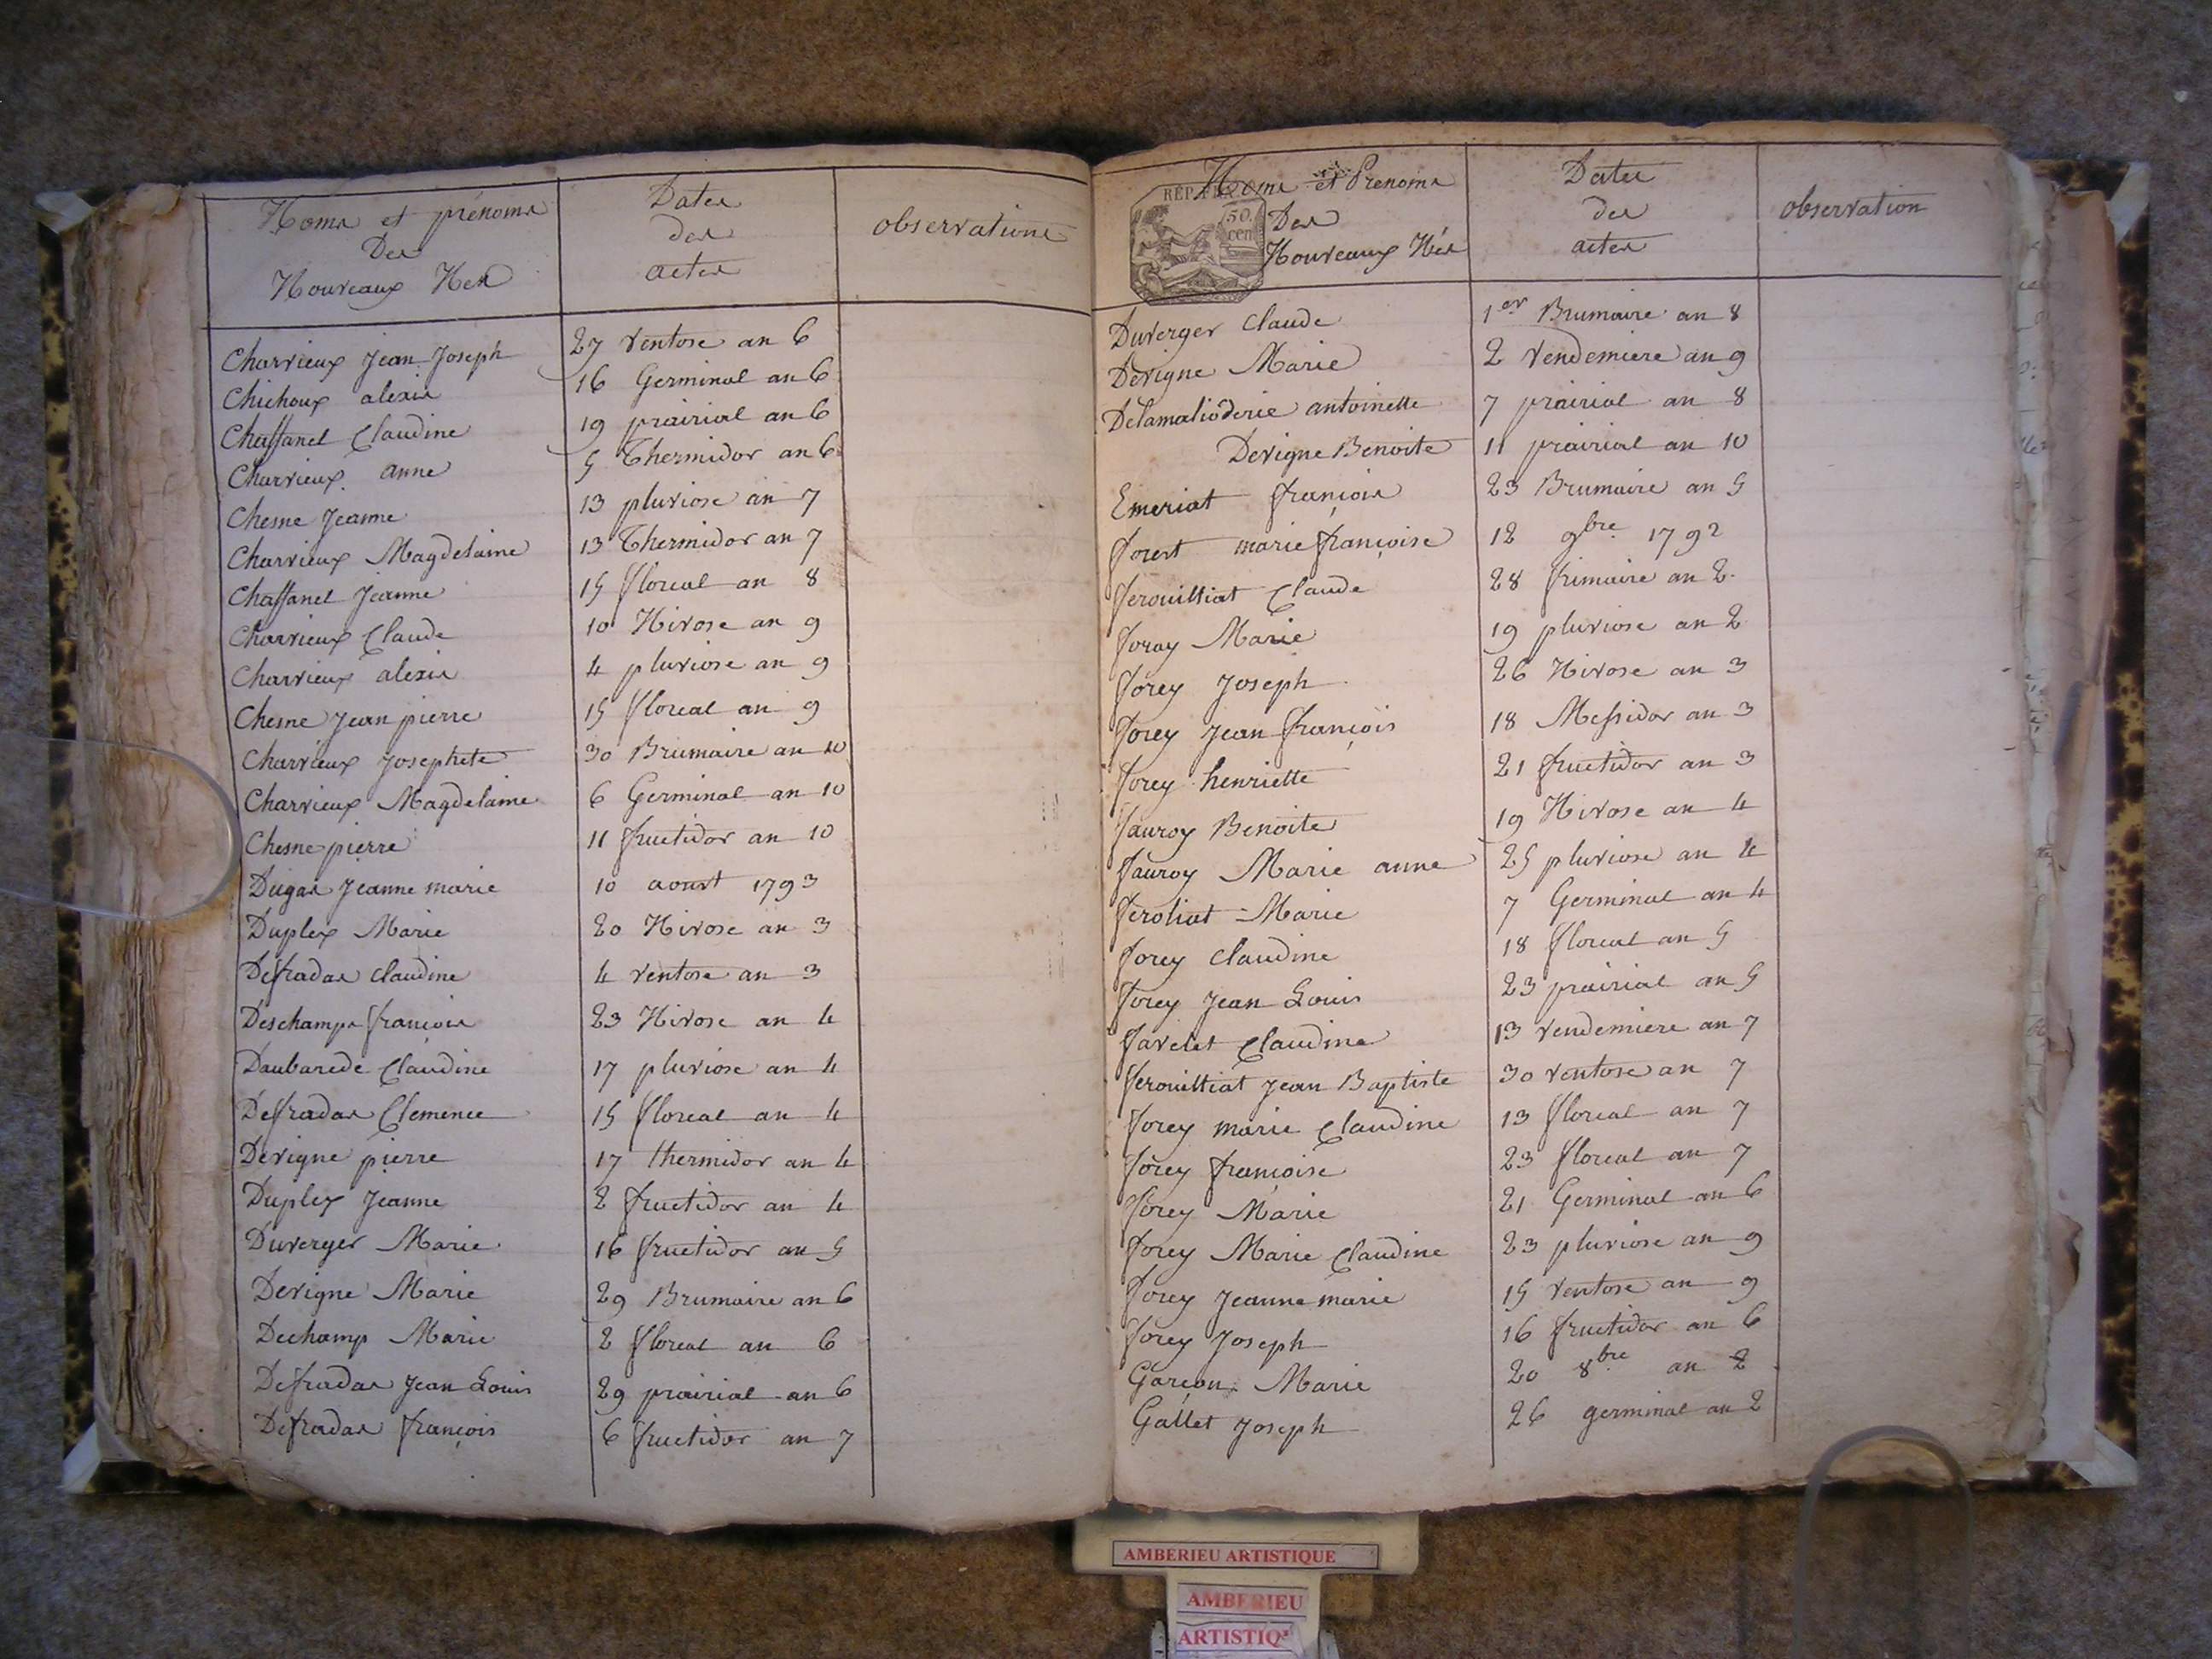 Noms et prénoms
Des
Nouveaux Nés
Dates
des
actes
observations
Charvieux Jean Joseph 27 ventose an 6
Chichoux alexis 16 Germinal an 6
Chaffanel Claudine 19 prairial an 6
Charvieux anne 5 Thermidor an 6
Chesne Jeanne 13 pluviose an 7
Charvieux Magdelaine 13 Thermidor an 7
Chaffanel Jeanne 15 floreal an 8
Charvieux Claude 10 Nivose an 9
Charvieux alexis 4 pluviose an 9
Chesne Jean pierre 15 floreal an 9
Charvieux Josephete 30 Brumaire an 10
Charvieux Magdelaine 6 Germinal an 10
Chesne pierre 11 fructidor an 10
Dugas Jeanne marie 10 aoust 1793
Duplex Marie 20 Nivose an 3
Defradas claudine 4 ventose an 3
Deschamps françois 23 Nivose an 4
Daubarede Claudine 17 pluviose an 4
Defradas Clemence 15 floreal an 4
Devigne pierre 17 thermidor an 4
Duplex Jeanne 2 fructidor an 4
Duverger Marie 16 fructidor an 5
Devigne Marie 29 Brumaire an 6
Dechamp Marie 2 floreal an 6
Defradas Jean Louis 29 prairial an 6
Defradas françois 6 fructidor an 7
Noms et Prenoms
Des
Nouveaux Nés
RÉP. FRA
50.
cen
Dates
des
actes
observation
Duverger Claude 1er Brumaire an 8
Devigne Marie 2 vendemiere an 9
Delamalioderie antoinette 7 prairial an 8
Devigne Benoite 11 prairial an 10
Emeriat françois 23 Brumaire an 5
forest marie françoise 12 9bre 1792
ferouilliat Claude 28 frimaire an 2.
foray Marie 19 pluviose an 2
forey Joseph 26 Nivose an 3
forey Jean françois 18 Messidor an 3
forey henriette 21 fructidor an 3
fauroy Benoite 19 Nivose an 4
fauroy Marie anne 25 pluviose an 4
feroliat Marie 7 Germinal an 4
forey Claudine 18 floreal an 5
forey Jean Louis 23 prairial an 5
favelet Claudine 13 vendemiere an 7
ferouilliat Jean Baptiste 30 ventose an 7
forey marie Claudine 13 floreal an 7
forey françoise 23 floreal an 7
forey Marie 21 Germinal an 6
forey Marie Claudine 23 pluviose an 9
forey Jeanne marie 15 ventose an 9
forey Joseph 16 fructidor an 6
Garçon Marie 20 8bre an 2
Gallet Joseph 26 germinal an 2
AMBERIEU ARTISTIQUE
AMBERIEU
ARTISTIQ